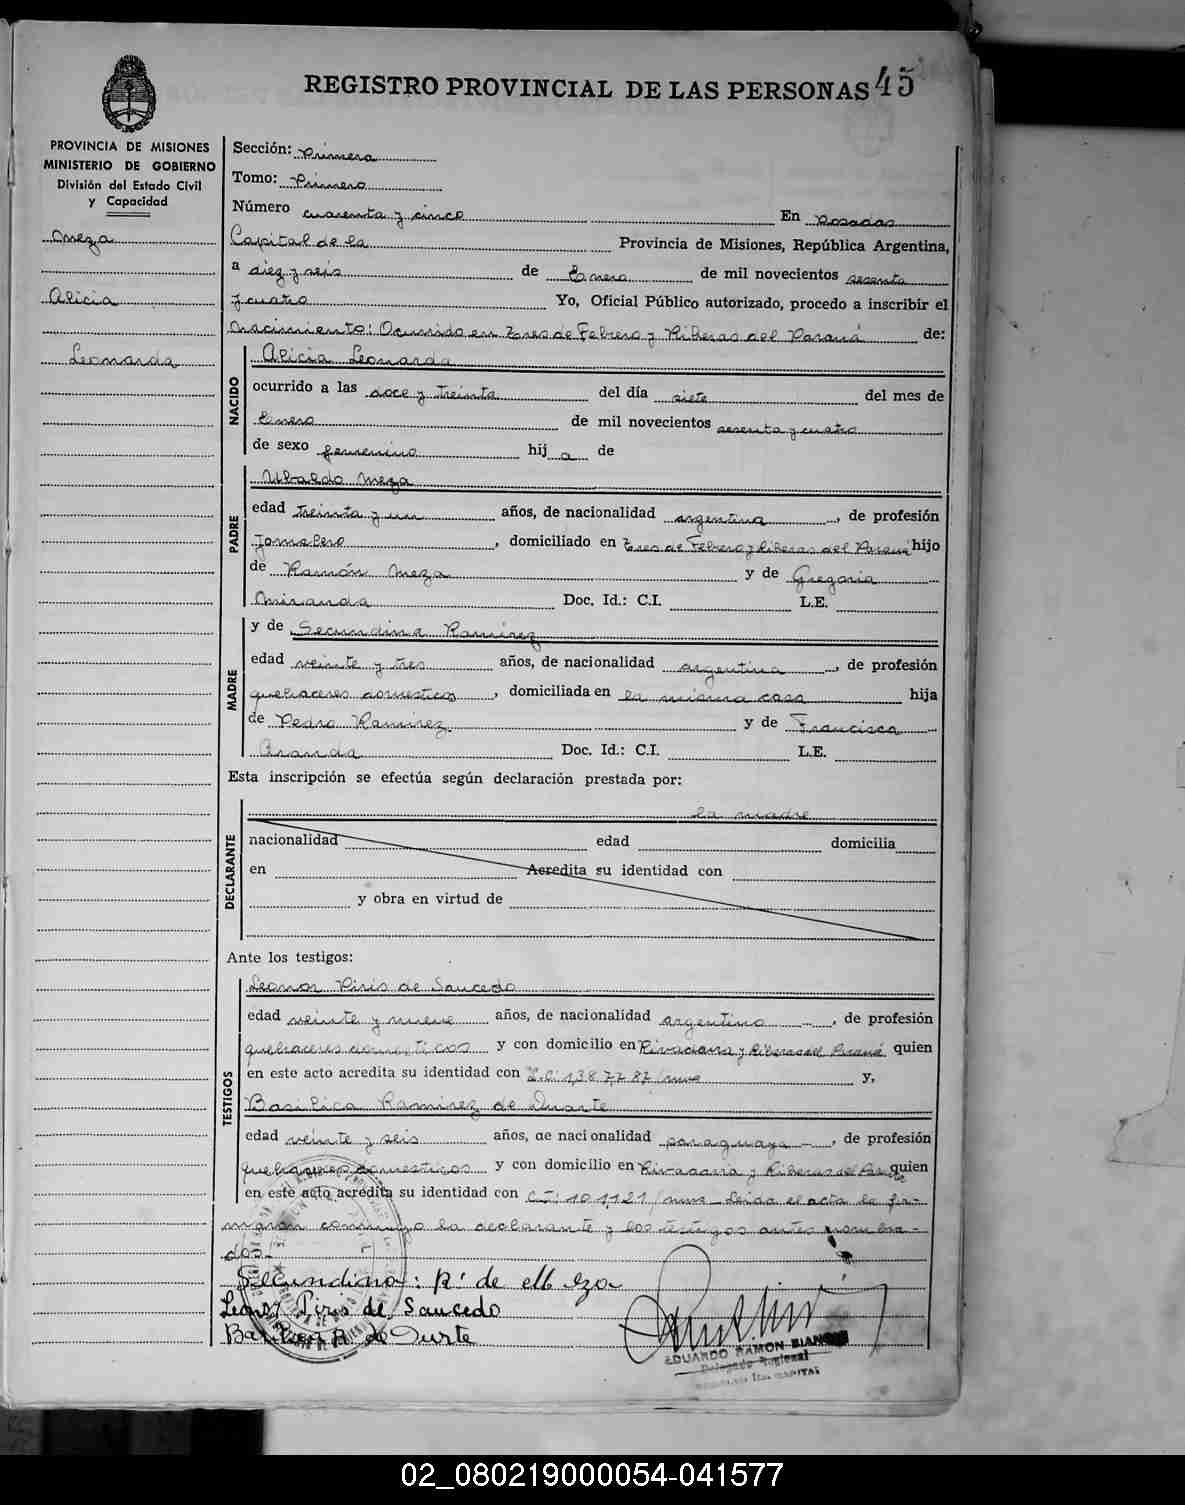 REGISTRO PROVINCIAL DE LAS PERSONAS 45
PROVINCIA DE MISIONES
MINISTERIO DE GOBIERNO
División del Estado Civil
y Capacidad
Meza
Alicia
Leonarda
Sección: Primera
Tomo: Primero
Número cuarenta y cinco En Posadas
Capital de la Provincia de Misiones, República Argentina,
a diez y seis de Enero de mil novecientos sesenta
y cuatro Yo, Oficial Público autorizado, procedo a inscribir el
Nacimiento: Ocurrido en Tres de Febrero y Riberas del Paraná de:
NACIDO
Alicia Leonarda
ocurrido a las doce y treinta del día siete del mes de
Enero de mil novecientos sesenta y cuatro
de sexo femenino hij a de
PADRE
Ubaldo Meza
edad treinta y un años, de nacionalidad argentina, de profesión
Jornalero, domiciliado en Tres de Febrero y Riberas del Paraná hijo
de Ramón Meza y de Gregoria
Miranda Doc. Id.: C.I. L.E.
MADRE
y de Secundina Ramirez
edad veinte y tres años, de nacionalidad argentina, de profesión
quehaceres domesticos, domiciliada en la misma casa hija
de Pedro Ramirez y de Francisca
Aranda Doc. Id.: C.I. L.E.
Esta inscripción se efectúa según declaración prestada por:
DECLARANTE
la madre
nacionalidad edad domicilia
en Acredita su identidad con
y obra en virtud de
Ante los testigos:
TESTIGOS
Leonor Piris de Saucedo
edad veinte y nueve años, de nacionalidad argentina, de profesión
quehaceres domesticos y con domicilio en Rivadavia y Riberas del Paraná quien
en este acto acredita su identidad con y,
Basilica Ramirez de Duarte
edad veinte y seis años, de nacionalidad paraguaya, de profesión
quehaceres domesticos y con domicilio en Rivadavia y Riberas del Paraná quien
en este acto acredita su identidad con C.I: 101,121 Leida el acta la fir-
maron conmigo la declarante y los testigos antes nombra-
dos.-
Secundina: R. de Meza
Leonor Piris de Saucedo
Basilica R de Durte
EDUARDO RAMON BIANCHI
Delegado Regional
02_080219000054-041577